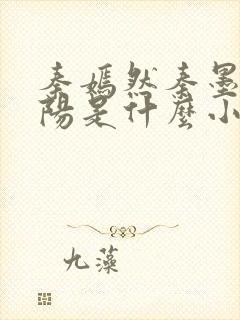 秦嫣然秦墨
陽是什麼小
九藻